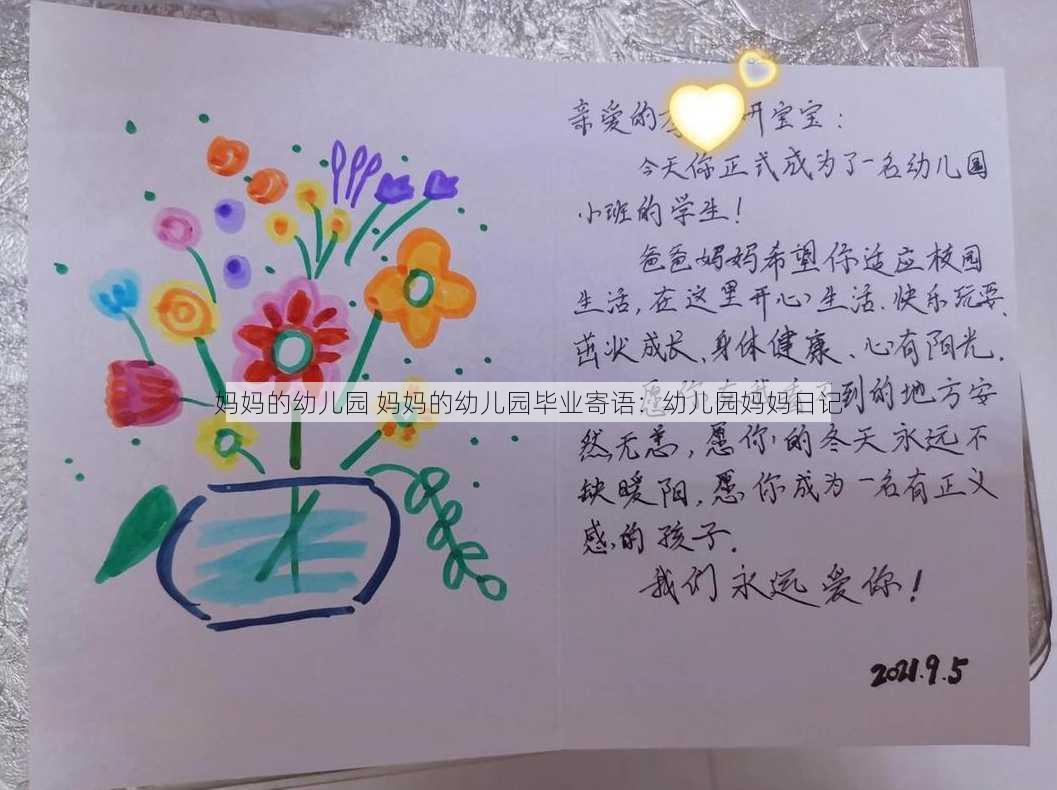 亲爱的 开宝宝：
今天你正式成为了一名幼儿园
小班的学生！
爸爸妈妈希望你适应校园
生活，在这里开心生活、快乐玩耍、
茁状成长、身体健康、心有阳光。
到的地方安
妈妈的幼儿园 妈妈的幼儿园毕业寄语：幼儿园妈妈日记
然无恙，愿你的冬天永远不
缺暖阳，愿你成为一名有正义
感的孩子。
我们永远爱你！
2021.9.5